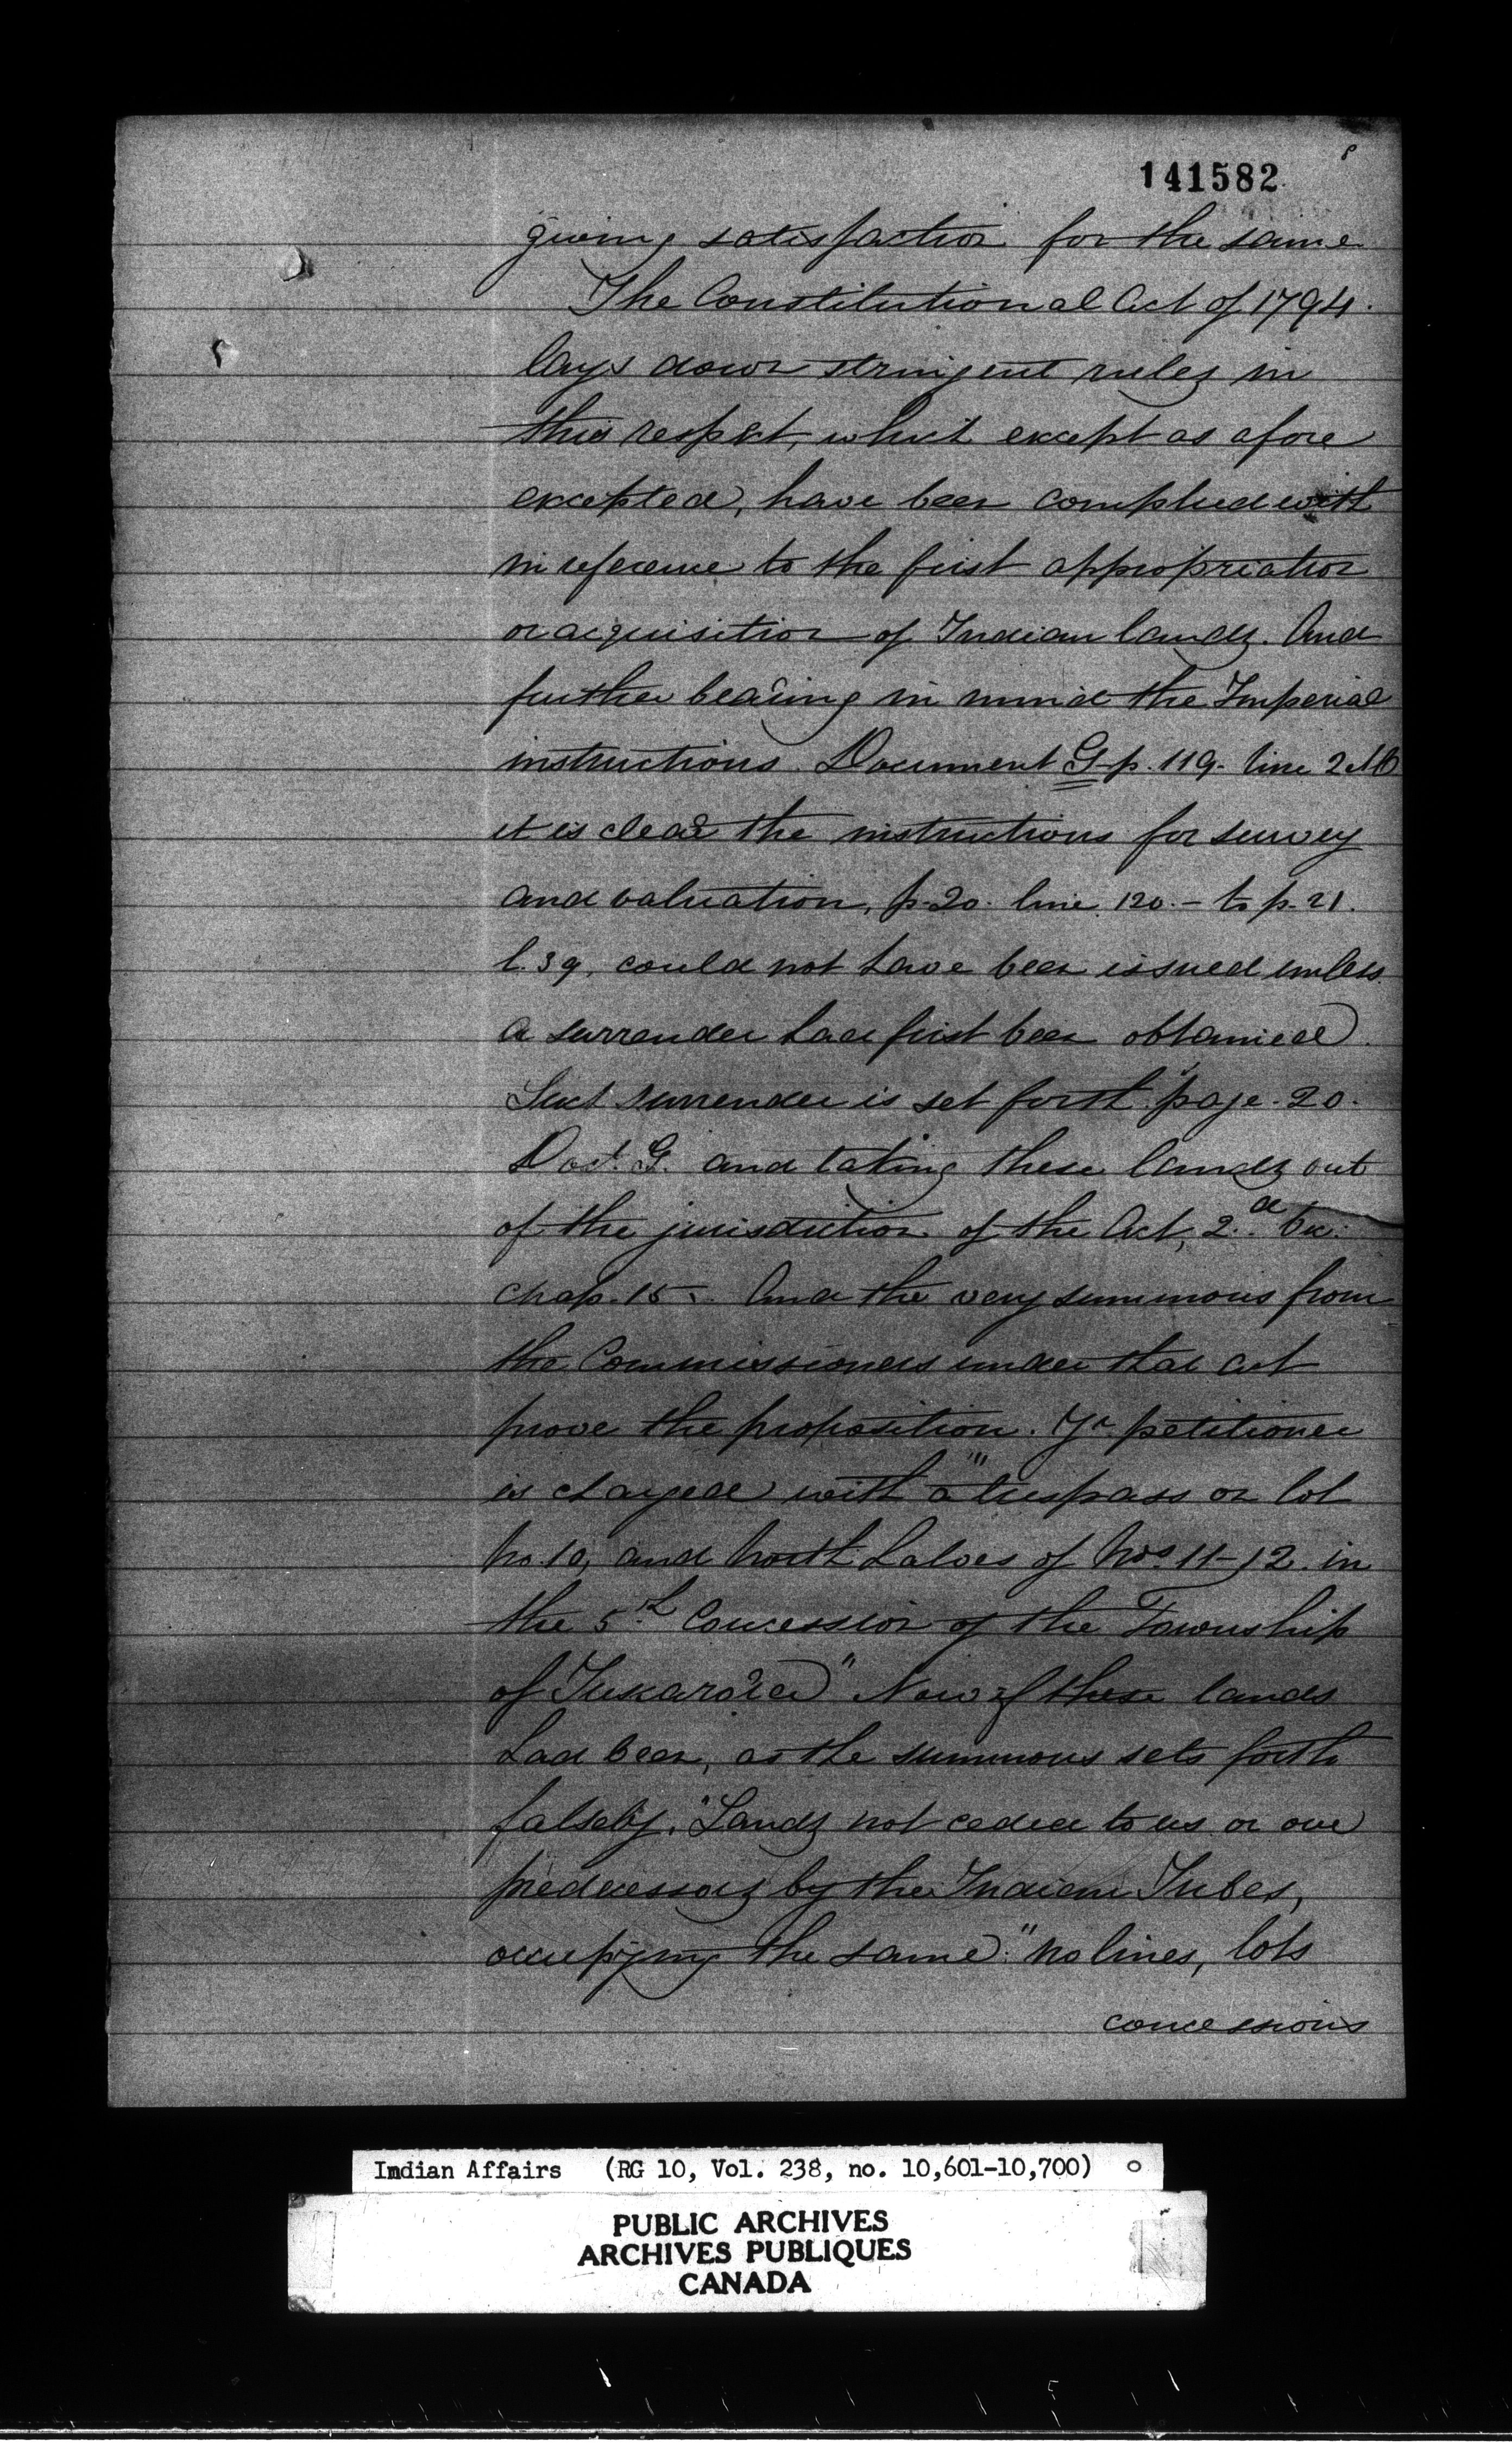 8
141582
giving satisfaction for the same
The Constitutional Act of 1794.
lays down stringent rules in
this respect, which except as afore
excepted, have been complied with
in reference to the first appropriation
or acquisition of Indian lands. And
further bearing in mind the Imperial
instructions. Document G p. 119. line 2
it is clear the instructions for survey
and valuation, p. 20. line 120. – to p. 21.
l. 39, could not have been issued unless
a surrender had first been obtained.
Such surrender is set forth page. 20.
Doct. G. and taking these lands out
of the jurisdiction of the Act, 2.d Vic:
chap. 15. And the very summons from
the Commissioners under that act
prove the proposition. Yr petitioner
is charged with "a trespass on lot
No. 10, and North halves of Nos. 11-12. in
the 5.th Concession of the Township
of Tuscarora" Now if these lands
had been, as the summons sets forth
falsely, "Lands not ceded to us or our
predecessors by the Indian Tribes,
occupying the same." no lines, lots
concessions
Indian Affairs (RG 10, Vol. 238, no. 10,601-10,700)
PUBLIC ARCHIVES
ARCHIVES PUBLIQUES
CANADA